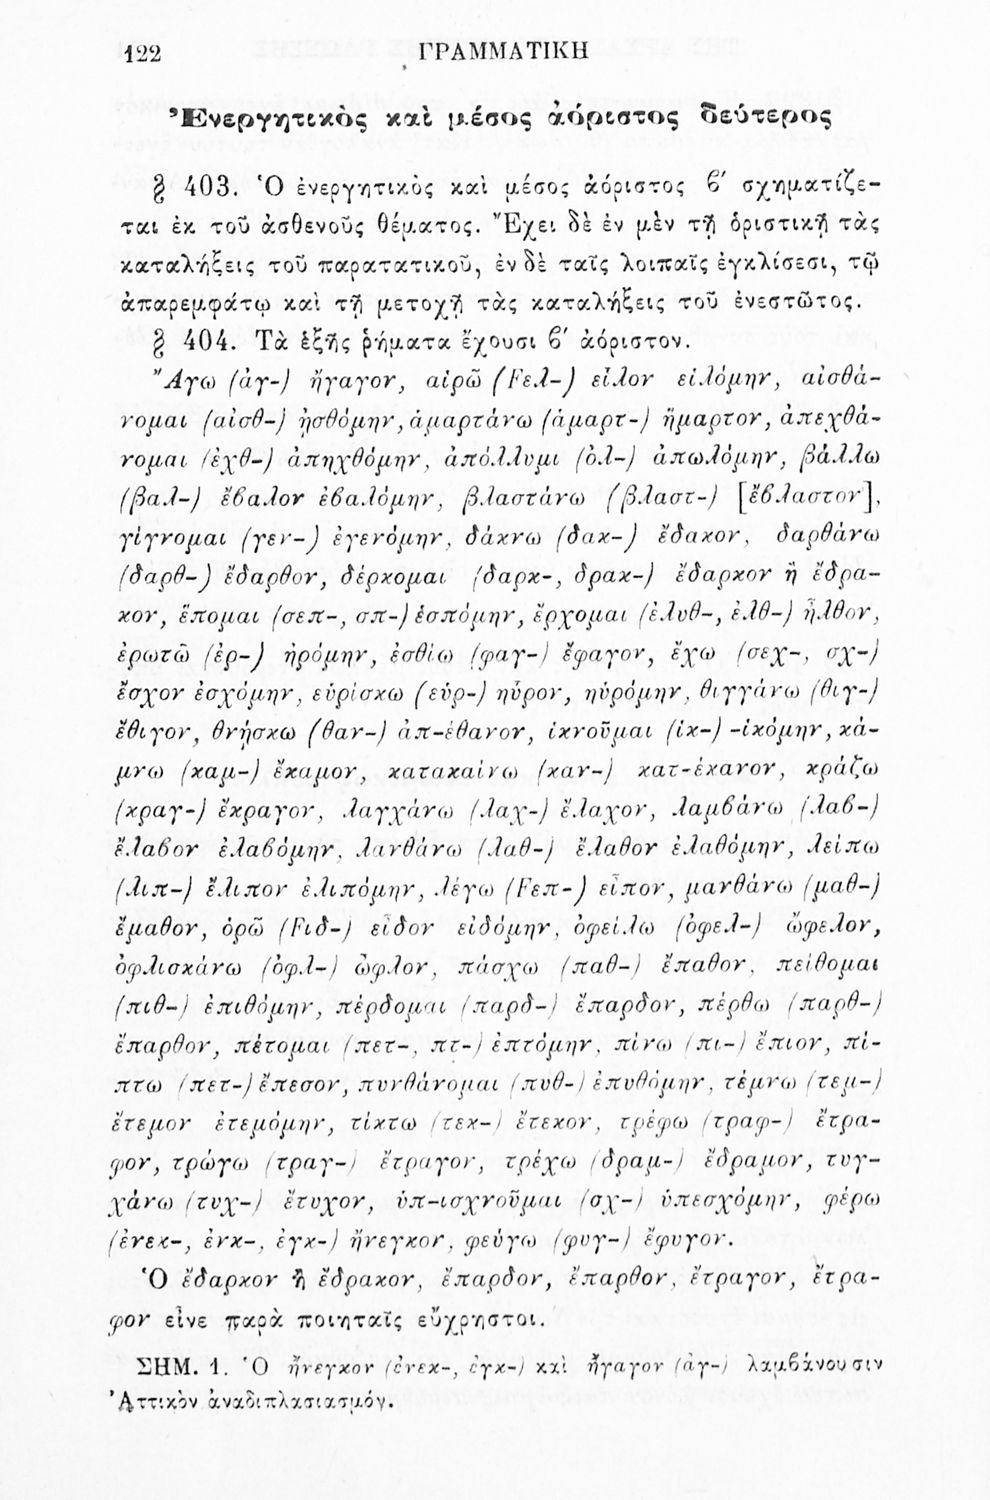 122
ΓΡΑΜΜΑΤΙΚΗ
Ἐνεργητικὸς καὶ μέσος ἀόριστος δεύτερος
§ 403. Ὁ ἐνεργητικὸς καὶ μέσος ἀόριστος ϐ′ σχηματίζε-
ται ἐκ τοῦ ἀσθενοῦς θέματος. Ἔχει δὲ ἐν μὲν τῇ ὁριστικῇ τὰς
καταλήξεις τοῦ παρατατικοῦ, ἐν δὲ ταῖς λοιπαῖς ἐγκλίσεσι, τῷ
ἀπαρεμφάτῳ καὶ τῇ μετοχῇ τὰς καταλήξεις τοῦ ἐνεστῶτος.
§ 404. Τὰ ἑξῆς ῥήματα ἔχουσι ϐ′ ἀόριστον.
Ἄγω (ἀγ-) ἤγαγον, αἱρῶ (Fελ-) εἷλον εἱλόμην, αἰσθά-
νομαι (αἰσθ-) ᾐσθόμην, ἁμαρτάνω (ἁμαρτ-) ἥμαρτον, ἀπεχθά-
νομαι (ἐχθ-) ἀπηχθόμην, ἀπόλλυμι (ὀλ-) ἀπωλόμην, βάλλω
(βαλ-) ἔϐαλον ἐϐαλόμην, βλαστάνω (βλαστ-) [ἔϐλαστον],
γίγνομαι (γεν-) ἐγενόμην, δάκνω (δακ-) ἔδακον, δαρθάνω
(δαρθ-) ἔδαρθον, δέρκομαι (δαρκ-, δρακ-) ἔδαρκον ἢ ἔδρα-
κον, ἕπομαι (σεπ-, σπ-) ἑσπόμην, ἔρχομαι (ἐλυθ-, ἐλθ-) ἦλθον,
ἐρωτῶ (ἐρ-) ἠρόμην, ἐσθίω (φαγ-) ἔφαγον, ἔχω (σεχ-, σχ-)
ἔσχον ἐσχόμην, εὑρίσκω (εὑρ-) ηὗρον, ηὑρόμην, θιγγάνω (θιγ-)
ἔθιγον, θνῄσκω (θαν-) ἀπ-έθανον, ἱκνοῦμαι (ἱκ-) -ἱκόμην, κά-
μνω (καμ-) ἔκαμον, κατακαίνω (καν-) κατ-έκανον, κράζω
(κραγ-) ἔκραγον, λαγχάνω (λαχ-) ἔλαχον, λαμϐάνω (λαϐ-)
ἔλαϐον ἐλαϐόμην, λανθάνω (λαθ-) ἔλαθον ἐλαθόμην, λείπω
(λιπ-) ἔλιπον ἐλιπόμην, λέγω (Fεπ-) εἶπον, μανθάνω (μαθ-)
ἔμαθον, ὁρῶ (Fιδ-) εἶδον εἰδόμην, ὀφείλω (ὀφελ-) ὤφελον,
ὀφλισκάνω (ὀφλ-) ὦφλον, πάσχω (παθ-) ἔπαθον, πείθομαι
(πιθ-) ἐπιθόμην, πέρδομαι (παρδ-) ἔπαρδον, πέρθω (παρθ-)
ἔπαρθον, πέτομαι (πετ-, πτ-) ἐπτόμην, πίνω (πι-) ἔπιον, πί-
πτω (πετ-) ἔπεσον, πυνθάνομαι (πυθ-) ἐπυθόμην, τέμνω (τεμ-)
ἔτεμον ἐτεμόμην, τίκτω (τεκ-) ἔτεκον, τρέφω (τραφ-) ἔτρα-
φον, τρώγω (τραγ-) ἔτραγον, τρέχω (δραμ-) ἔδραμον, τυγ-
χάνω (τυχ-) ἔτυχον, ὑπ-ισχνοῦμαι (σχ-) ὑπεσχόμην, φέρω
(ἐνεκ-, ἐνκ-, ἐγκ-) ἤνεγκον, φεύγω (φυγ-) ἔφυγον.
Ὁ ἔδαρκον ἢ ἔδρακον, ἔπαρδον, ἔπαρθον, ἔτραγον, ἔτρα-
φον εἶνε παρὰ ποιηταῖς εὔχρηστοι.
ΣΗΜ. 1. Ὁ ἤνεγκον (ἐνεκ-, ἐγκ-) καὶ ἤγαγον (ἀγ-) λαμϐάνουσιν
Ἀττικὸν ἀναδιπλασιασμόν.